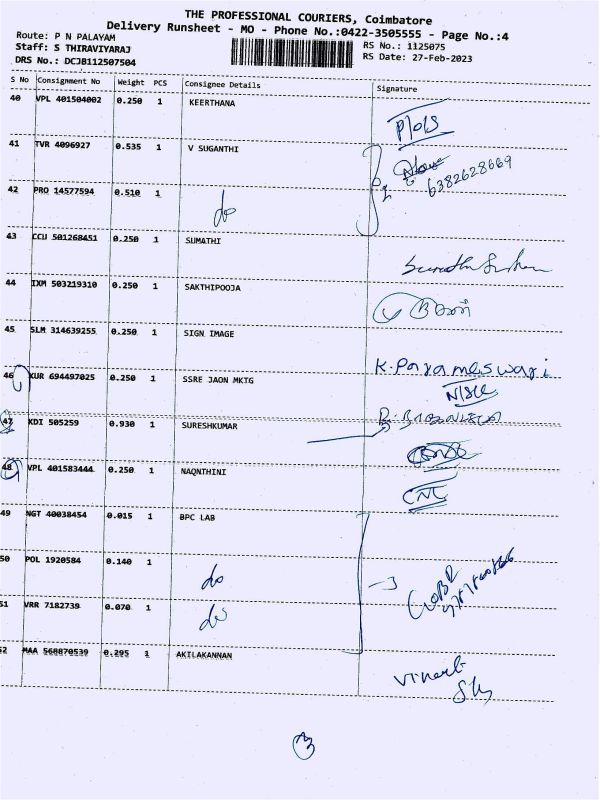 THE PROFESSIONAL COURIERS, Coimbatore
Delivery Runsheet - MO - Phone No.:0422-3505555 - Page No.:4
Route: P N PALAYAM
RS No.: 1125075
Staff: S THIRAVIYARAJ
RS Date: 27-Feb-2023
DRS No.: DCJB112507504
S No Consignment No Weight PCS Consignee Details Signature
40 VPL 401504002 0.250 1 KEERTHANA
41 TVR 4096927 0.535 1 V SUGANTHI
6382628669
42 PRO 14577594 0.510 1 do
43 CCU 501268451 0.250 1 SUMATHI
44 IXM 503219310 0.250 1 SAKTHIPOOJA
45 SLM 314639255 0.250 1 SIGN IMAGE
K. Parameswari
46 KUR 694497025 0.250 1 SSRE JAON MKTG
47 KDI 505259 0.930 1 SURESHKUMAR
48 VPL 401583444 0.250 1 NAQNTHINI
49 NGT 40038454 0.015 1 BPC LAB
50 POL 1920584 0.140 1 do
51 VRR 7182739 0.070 1 do
52 MAA 568870539 0.295 1 AKILAKANNAN